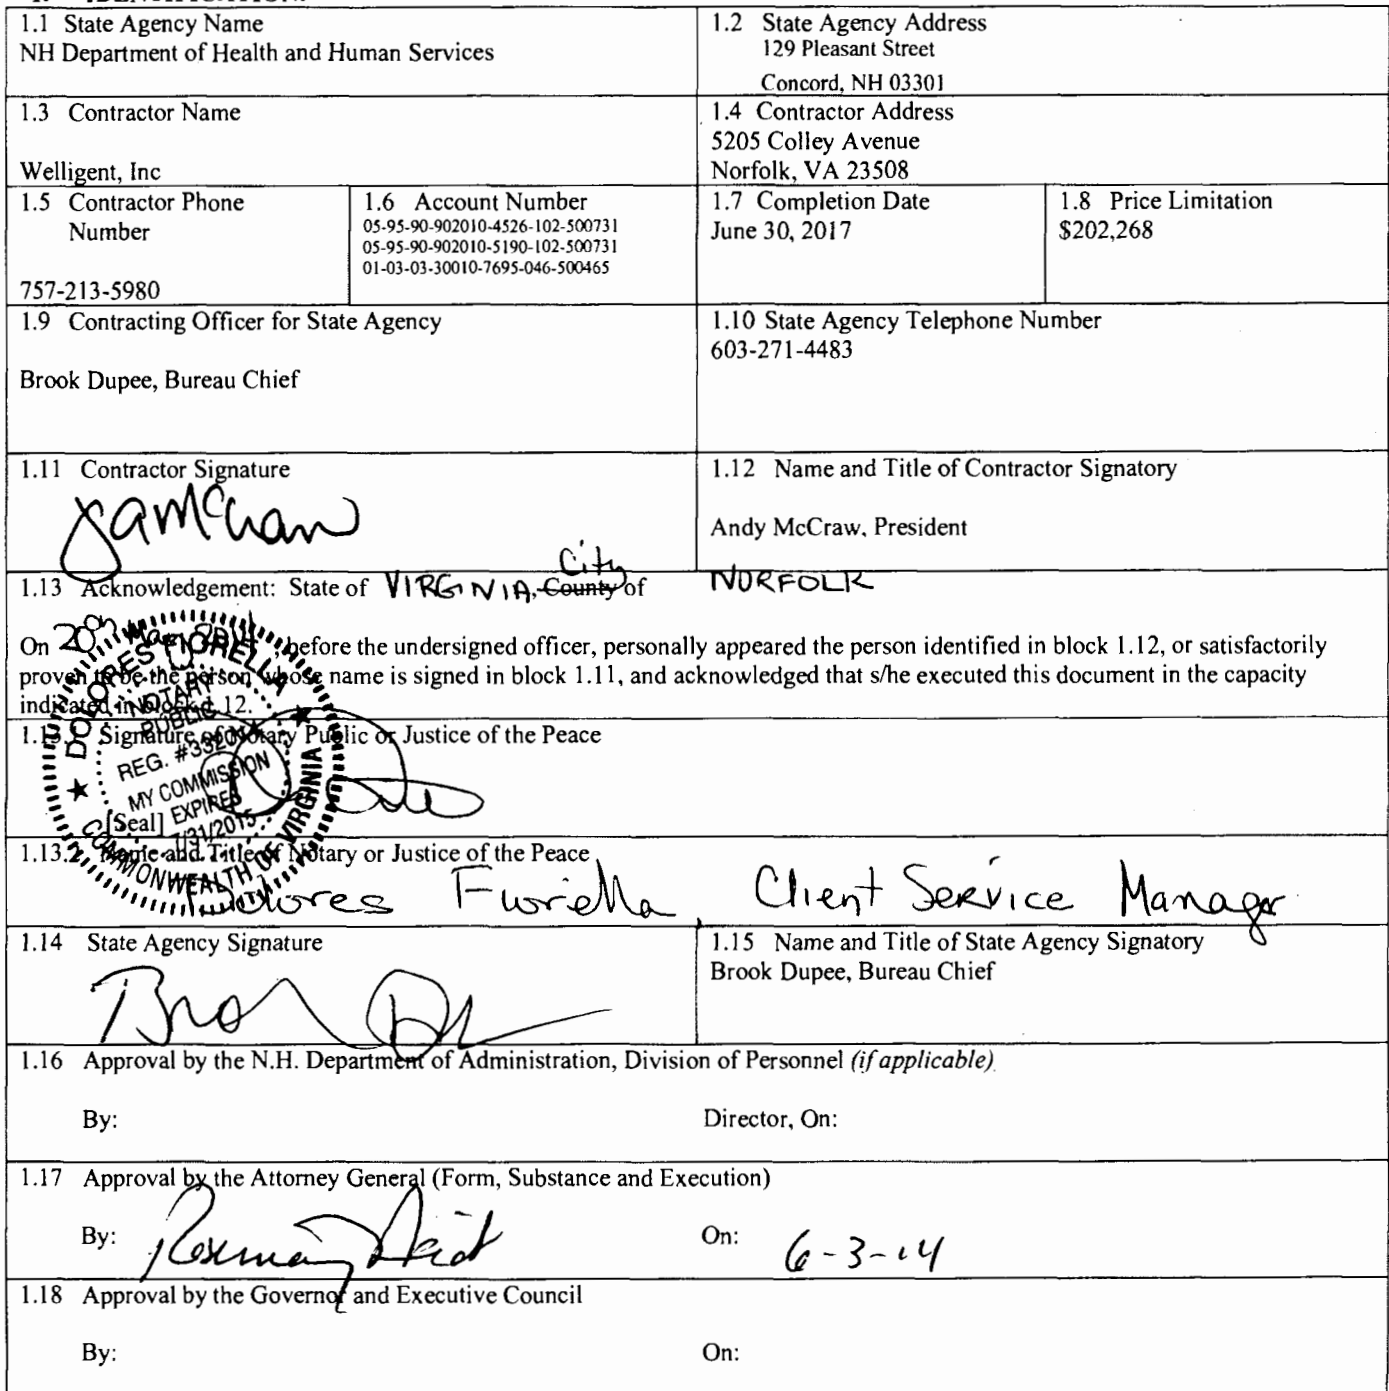 1.1 State Agency Name
NH Department of Health and Human Services
1.2 State Agency Address
129 Pleasant Street
Concord, NH 03301
1.3 Contractor Name
Welligent, Inc
1.4 Contractor Address
5205 Colley Avenue
Norfolk, VA 23508
1.5 Contractor Phone
Number
757-213-5980
1.6 Account Number
05-95-90-902010-4526-102-500731
05-95-90-902010-5190-102-500731
01-03-03-30010-7695-046-500465
1.7 Completion Date
June 30, 2017
1.8 Price Limitation
$202,268
1.9 Contracting Officer for State Agency
Brook Dupee, Bureau Chief
1.10 State Agency Telephone Number
603-271-4483
1.11 Contractor Signature
1.12 Name and Title of Contractor Signatory
Andy McCraw, President
City
1.13 Acknowledgement: State of VIRGINIA, County of NORFOLK
On 20th May, before the undersigned officer, personally appeared the person identified in block 1.12, or satisfactorily
proven to be the person whose name is signed in block 1.11, and acknowledged that s/he executed this document in the capacity
indicated in block 1.12.
Signature of Notary Public or Justice of the Peace
[Seal]
DOLORES FIORELLA
NOTARY
PUBLIC
REG. #
MY COMMISSION
EXPIRES
7/31/2015
COMMONWEALTH OF VIRGINIA
1.13.2 Name and Title of Notary or Justice of the Peace
Dolores Fiorella, Client Service Manager
1.14 State Agency Signature
1.15 Name and Title of State Agency Signatory
Brook Dupee, Bureau Chief
1.16 Approval by the N.H. Department of Administration, Division of Personnel (if applicable)
By: Director, On:
1.17 Approval by the Attorney General (Form, Substance and Execution)
By: On: 6-3-14
1.18 Approval by the Governor and Executive Council
By: On: